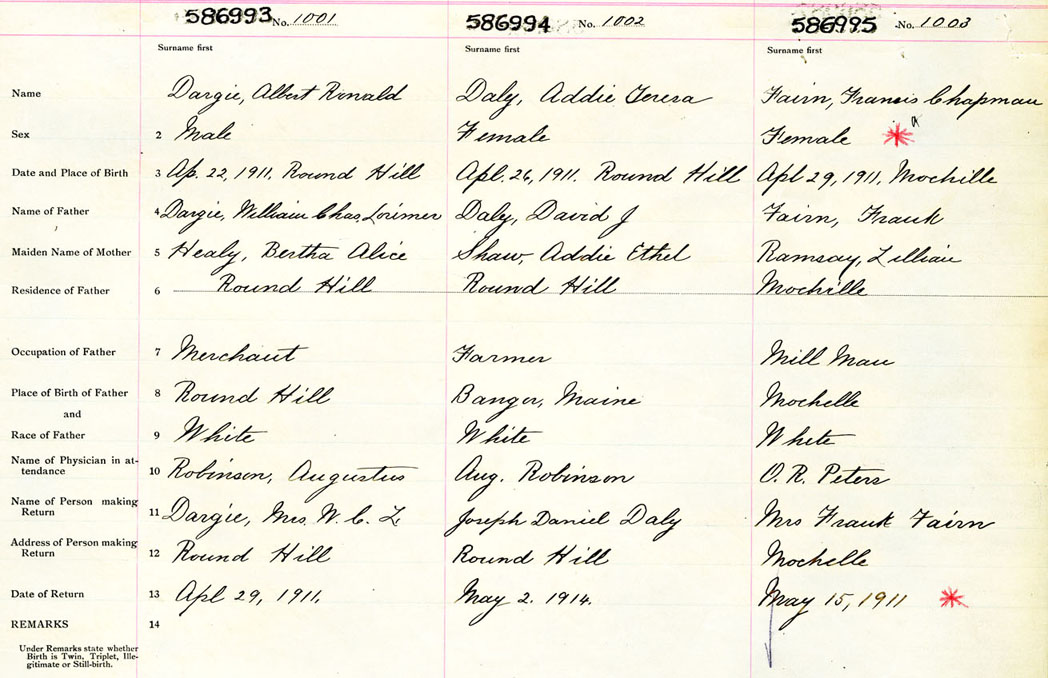 586993 No. 1001 586994 No. 1002 586995 No. 1003
Surname first Surname first Surname first
Name Dargie, Albert Ronald Daly, Addie Teresa Fairn, Francis Chapman
Sex 2 Male Female Female
Date and Place of Birth 3 Ap. 22, 1911. Round Hill Apl. 26, 1911. Round Hill Apl 29, 1911, Mochille
Name of Father 4 Dargie, William Chas, Lorimer Daly, David J Fairn, Frank
Maiden Name of Mother 5 Healy, Bertha Alice Shaw, Addie Ethel Ramsay, Lillian
Residence of Father 6 Round Hill Round Hill Mochille
Occupation of Father 7 Merchant Farmer Mill Man
Place of Birth of Father 8 Round Hill Banger, Maine Mochelle
and
Race of Father 9 White White White
Name of Physician in at-
tendance 10 Robinson, Augustus Aug. Robinson O. R. Peters
Name of Person making
Return 11 Dargie, Mrs. W. C. L. Joseph Daniel Daly Mrs Frank Fairn
Address of Person making
Return 12 Round Hill Round Hill Mochelle
Date of Return 13 Apl 29, 1911. May 2. 1914. May 15, 1911
REMARKS 14
Under Remarks state whether
Birth is Twin, Triplet, Ille-
gitimate or Still-birth.